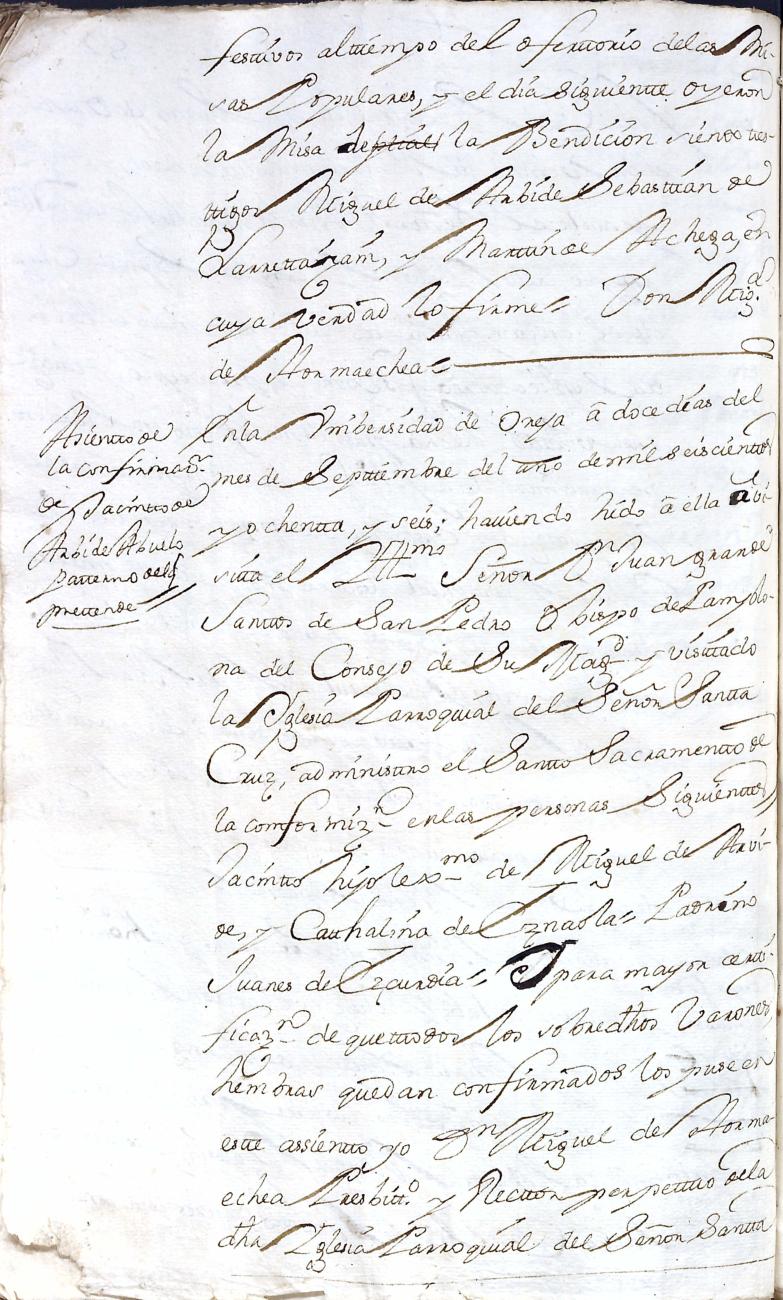 festivos al tiempo del ofertorio de las Mi-
sas Populares, y el dia siguiente oyeron
la Misa la Bendicion siendo tes-
tigos Miguel de Arbide Sebastian de
Larrettagam, y Martin de Achega, en
cuya verdad lo firme = Don Mig.l
de Hormaechea =
Asiento de
la confirmaz.n
de Jacintto de
Arbide Abuelo
patterno del q
prettende =
En la Vnibersidad de Oreja â doce dias del
mes de Septtiembre del año de mil seiscienttos
y ochentta, y seis; haviendo hido â ella a vi-
sitta el Illmo Señor Dn Juan grande
Santtos de San Pedro Obispo de Pamplo-
na del Consejo de Su Mag.d y visittado
la Yglesia Parroquial del Señor Santta
Cruz, administro el Santto Sacramentto de
la comformiz.n en las personas Siguienttes,
Jacintto hijo lexmo de Miguel de Arvi-
de, y Catthalina de Eznaola = Padrino
Juanes de Ezcurdia = Y para mayor certi-
ficaz.n de que ttodos los sobredhos Varones,
hembras quedan confirmados los puse en
este assientto yo Dn Miguel de Horma-
echea Presbitt.o y Recttor perpettuo de la
dha Yglesia Parroquial del Señor Santta